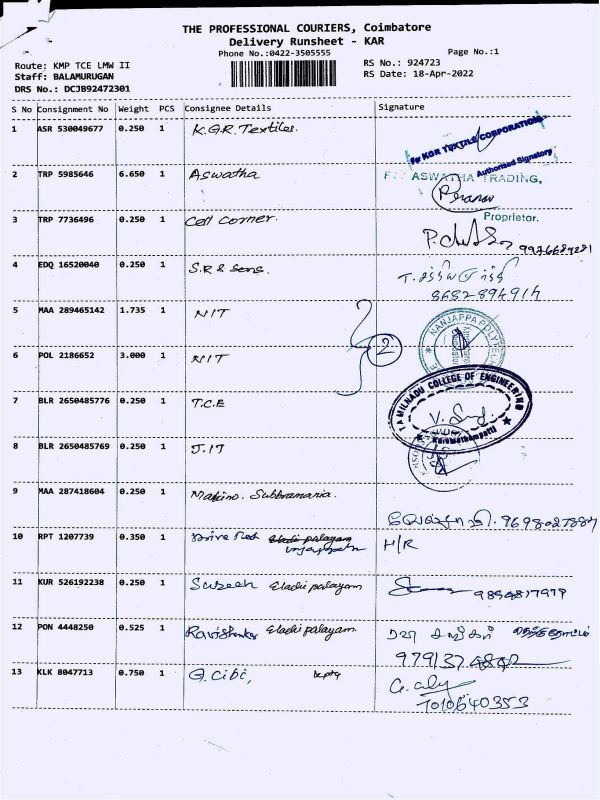 THE PROFESSIONAL COURIERS, Coimbatore
Delivery Runsheet - KAR
Phone No.:0422-3505555
Page No.:1
Route: KMP TCE LMW II
RS No.: 924723
Staff: BALAMURUGAN
RS Date: 18-Apr-2022
DRS No.: DCJB92472301
S No Consignment No Weight PCS Consignee Details Signature
1 ASR 530049677 0.250 1 K.G.R. Textiles.
For KGR TEXTILE CORPORATION
Authorised Signatory
2 TRP 5985646 6.650 1 Aswatha
ASWATHA TRADING,
Proprietor.
3 TRP 7736496 0.250 1 Cell Corner.
9976684281
4 EDQ 16520040 0.250 1 S.R & Sons.
8682894914
5 MAA 289465142 1.735 1 NIT
NANJAPPA
2
6 POL 2186652 3.000 1 NIT
7 BLR 2650485776 0.250 1 T.C.E
TAMILNADU COLLEGE OF ENGINEERING
Karumathampatti
8 BLR 2650485769 0.250 1 J.IT
9 MAA 287418604 0.250 1 Makino. Subbramania.
9698027884
10 RPT 1207739 0.350 1 H/R
11 KUR 526192238 0.250 1 Suresh Eladi palayam
9894817979
12 PON 4448250 0.525 1 Ravishankar Eladi palayam.
13 KLK 8047713 0.750 1 G. Cibi,
7010640353